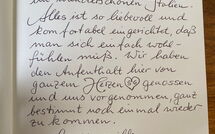 im wunderschönen Italien.
Alles ist so liebevoll und
komfortabel eingerichtet, daß
man sich einfach wohl-
fühlen muß. Wir haben
den Aufenthalt hier von
ganzem Herzen genossen
und uns vorgenommen, ganz
bestimmt noch einmal wieder
zu kommen.